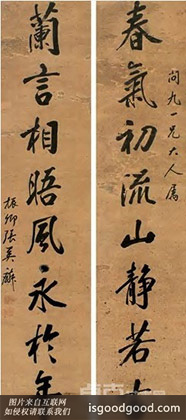 問九一兄大人属
春氣初流山靜若
蘭言相晤風永於年
振卿張英麟
图片来自互联网
如侵权请联系我们
isgoodgood.com